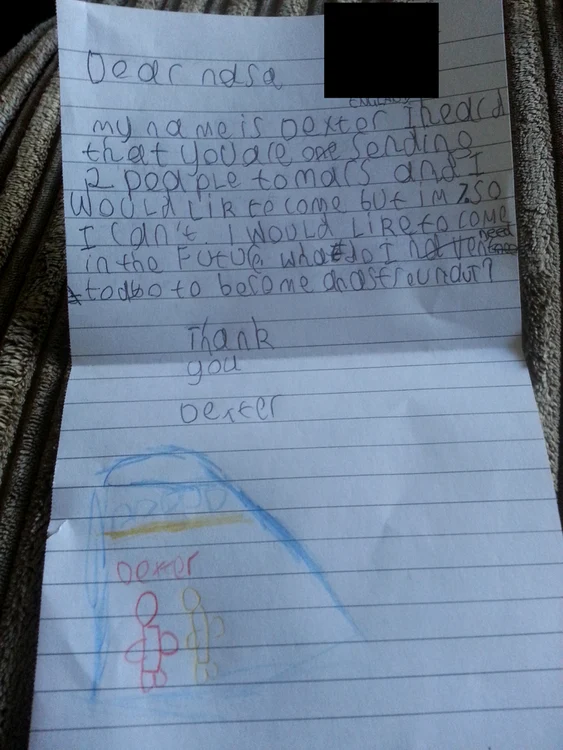 Dear nasa
ENGLAND
my name is Dexter I heard
that you are sending
2 peaple to mars and I
WOULD Lik to come but im 7.so
I can't. I WOULD LiKe to come
in the FUtUre what do I need
to do to become an astrounaut?
Thank
you
Dexter
Dexter